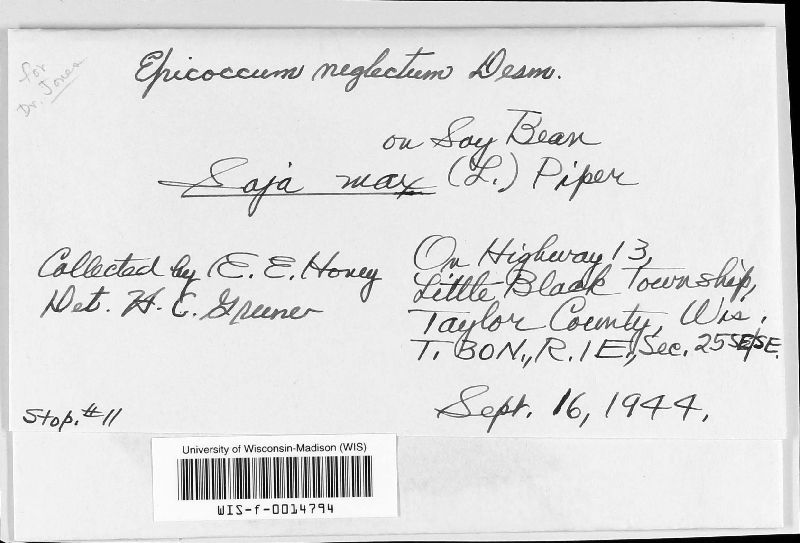 for
Dr. Jones
Epicoccum neglectum Desm.
on Soy Bean
Soja max (L.) Piper
Collected by E. E. Honey
Det. H. C. Greene
On Highway 13,
Little Black Township,
Taylor County, Wis.
T. 30N., R. 1E., Sec. 25 SE/SE.
Sept. 16, 1944.
Stop. #11
University of Wisconsin-Madison (WIS)
WIS-f-0014794